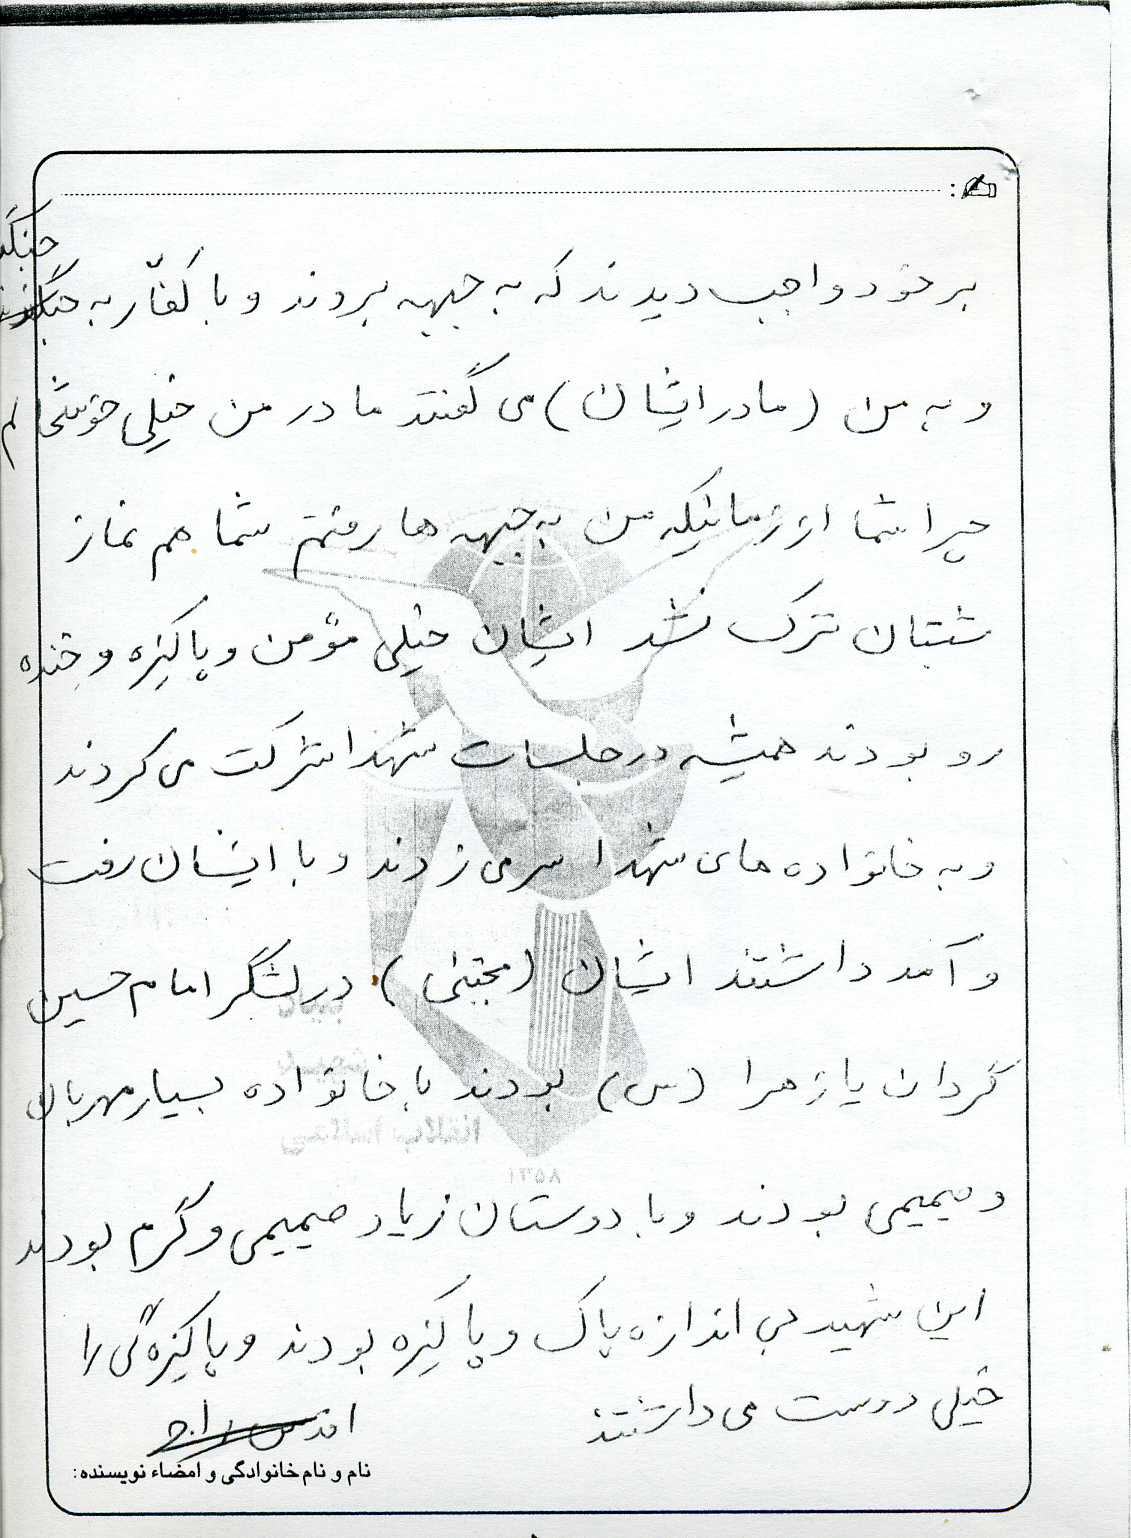 بر خود واجب دیدند که به جبهه بروند و با کفّار به
و به من (مادر ایشان) می گفتند مادر من خیلی خوشحالم
چرا شما از زمانیکه من به جبهه ها رفتم شما هم نماز
شبتان ترک نشد ایشان خیلی مؤمن و پاکیزه و خنده
رو بودند همیشه در جلسات شهدا شرکت می کردند
و به خانواده های شهدا سر می زدند و با ایشان رفت
و آمد داشتند ایشان (مجتبی) در لشگر امام حسین
گردان یا زهرا (س) بودند با خانواده بسیار مهربان
و صمیمی بودند و با دوستان زیاد صمیمی و گرم بودند
این شهید بی اندازه پاک و پاکیزه بودند و پاکیزه گی را
خیلی دوست می داشتند
اقدس
نام و نام خانوادگی و امضاء نویسنده:
۱۳۵۸